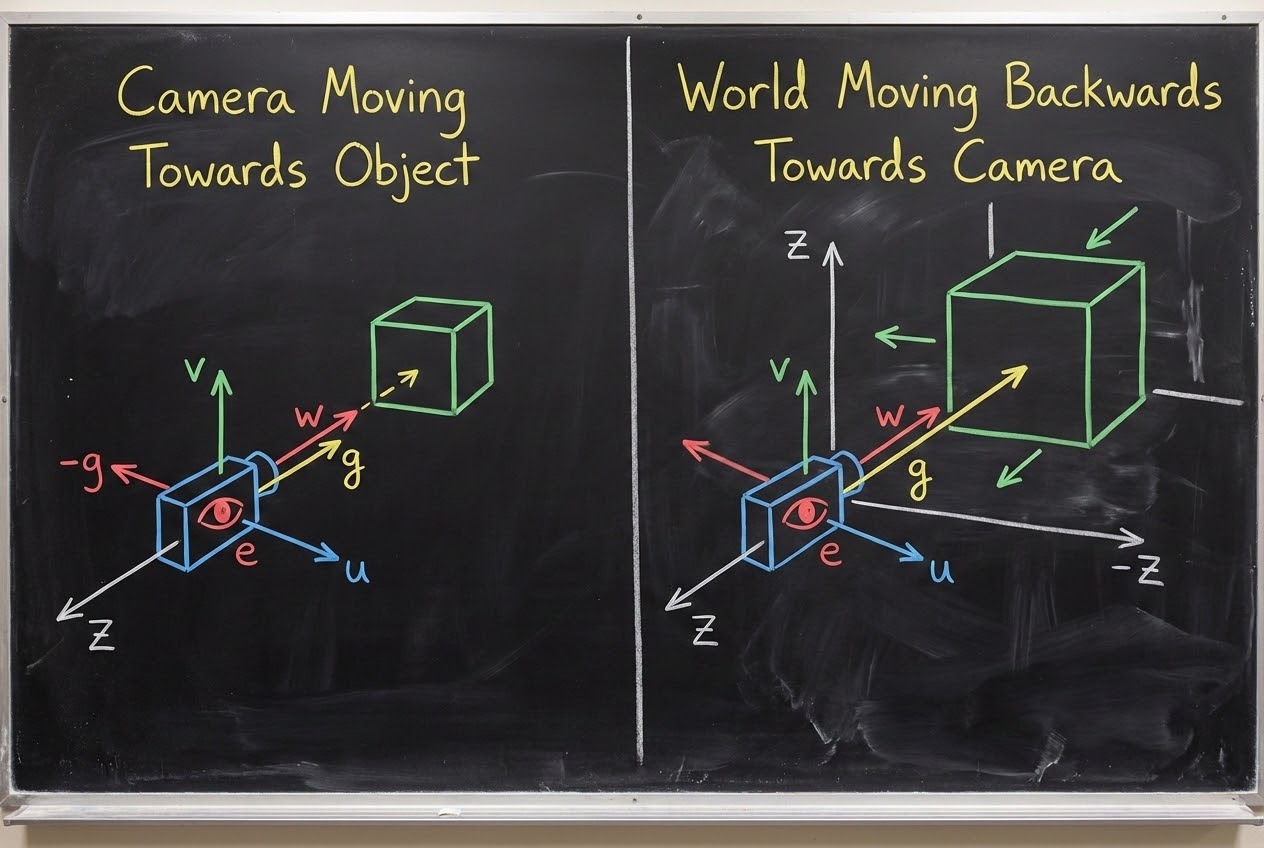 Camera Moving
Towards Object
v
w
-g
g
e
u
Z
World Moving Backwards
Towards Camera
Z
v
w
g
e
u
-Z
Z